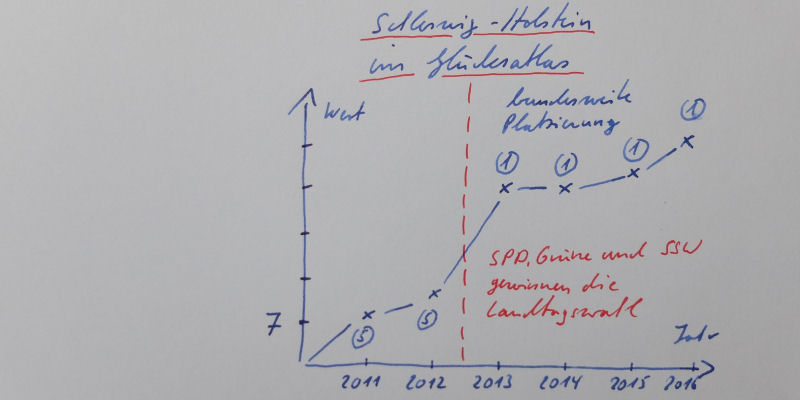 Schleswig-Holstein
im Glücksatlas
Wert
bundesweite
Platzierung
1
1
1
1
SPD, Grüne und SSW
gewinnen die
Landtagswahl
7
5
5
Jahr
2011 2012 2013 2014 2015 2016